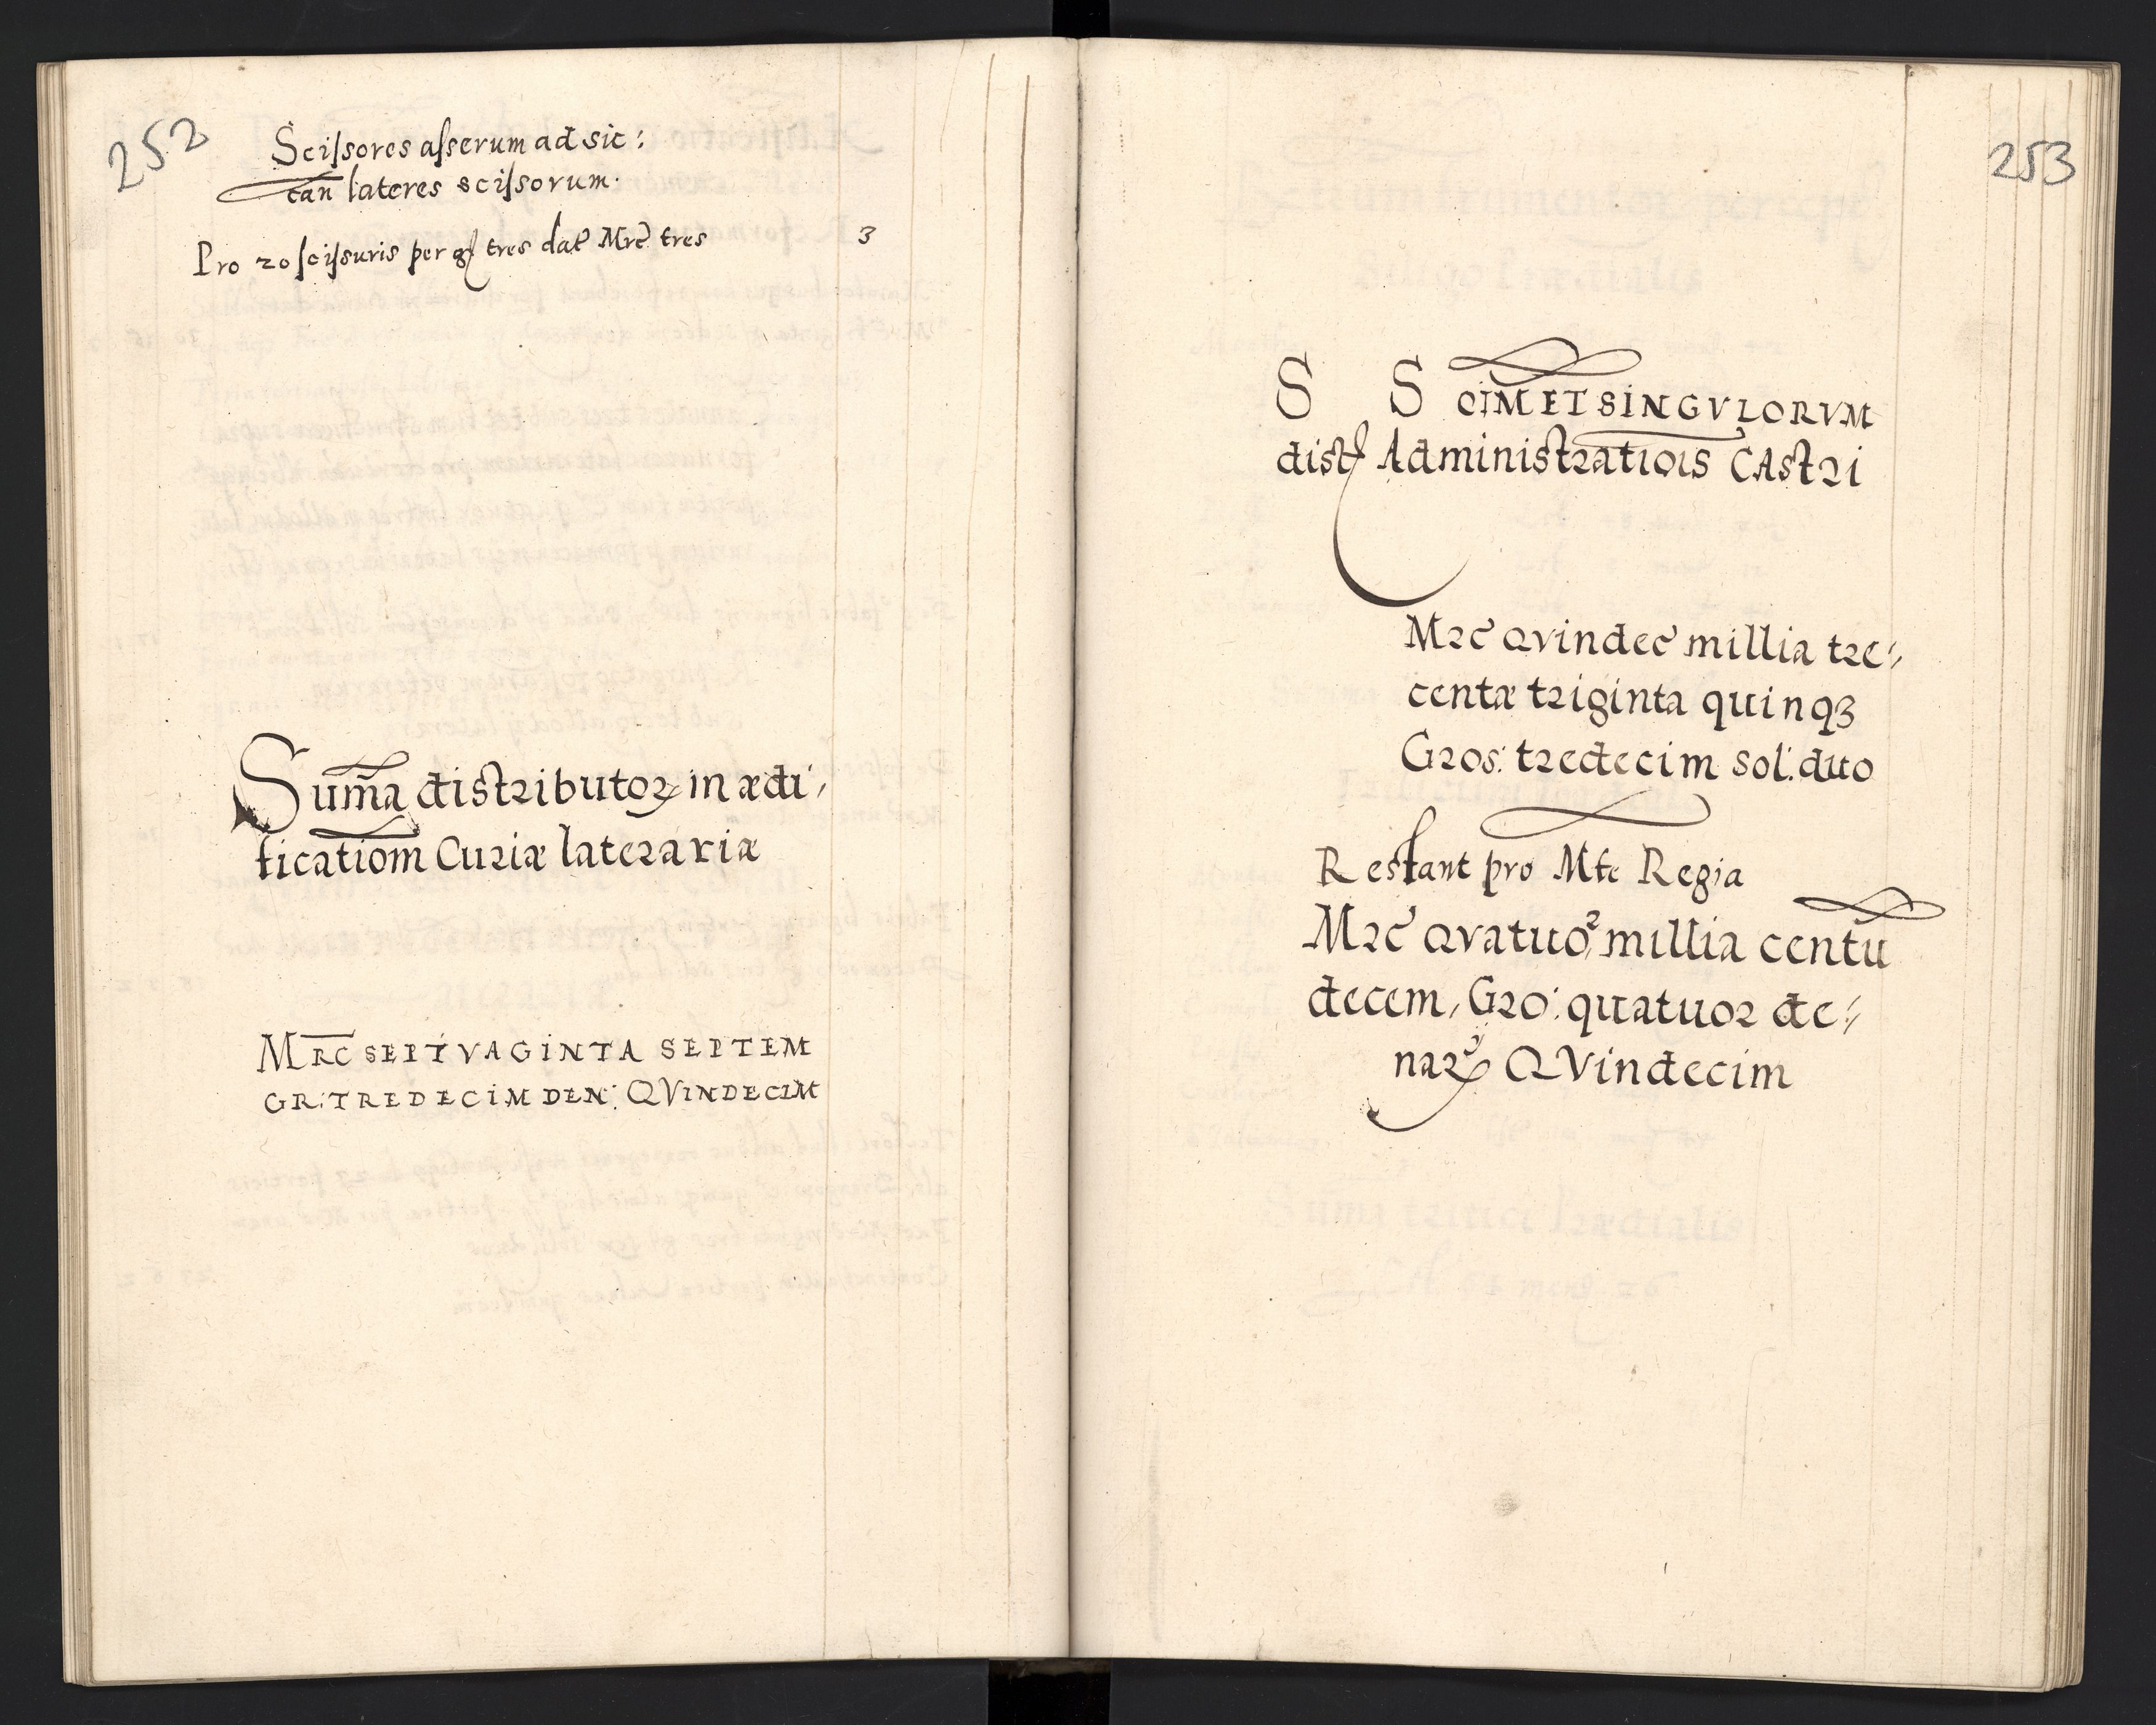 252
Scissores asserum ad sic:
can lateres scissorum.
Pro 20 scissuris per gſ tres dat Mrc tres 3
Suma distributor in ædi,
ficatiom Curiæ laterariæ
MRC SEPTVAGINTA SEPTEM
GR: TREDECIM DEN: QVINDECIM
253
S S OIM ET SINGVLORVM
dist Administratiois CAstri
Mrc Qvindec millia tre,,
centæ triginta quinqꝫ
Gros: tredecim sol: duo
Restant pro Mte Regia
Mrc Qvatuor millia centu
decem, Gro: quatuor de,,
nar QVindecim